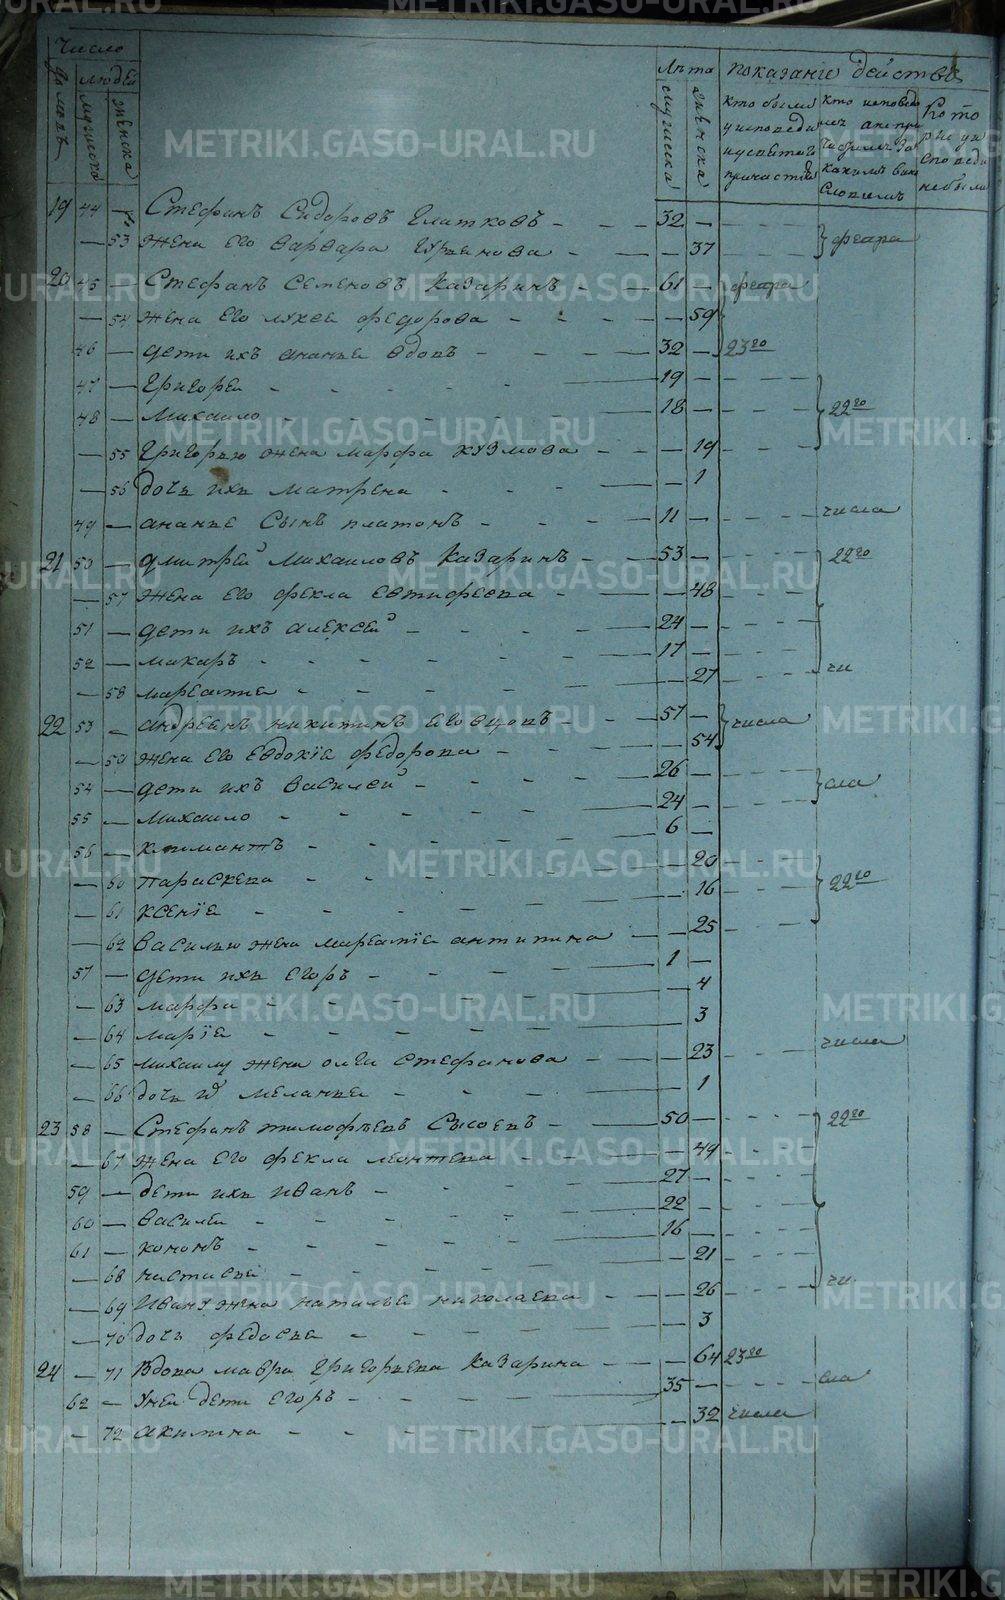 Число
домовъ людей
мужеска женска
Лѣта
мужеска женска
показание действа
кто были у исповеди и святаго причастия
кто исповедались а не причастились за какимъ винословиемъ
которие у исповеди не были
19 44 — Стефанъ Сидоровъ Глатковъ 32 —
— 53 жена его варвара 37 февра
20 45 — Стефанъ Семеновъ Казаринъ 61 — февра
— 54 жена его федорова — 59
46 — дети ихъ ананье вдовъ 32 — 23го
47 — Григореи 19 —
48 — Михаило 18 — 22го
— 55 Григорью жена марфа кузмова — 19
— 56 дочь ихъ матрена — 1
49 — ананье Сынъ платонъ 11 — числа
21 50 — дмитрей Михаиловъ Казаринъ 53 — 22го
— 57 жена его фекла евтифеева — 48
51 — дети ихъ алексей 24 —
52 — макаръ 17 — чи
— 58 — 27
22 53 — андреянъ никитинъ 57 — числа
— 59 жена его евдокїе федорова — 54
54 — дети ихъ василей 26 — сла
55 — михаило 24 —
56 — климантъ 6 —
— 60 Параскева — 20 22го
— 61 ксенїе — 16
— 62 василью жена антипина — 25
57 — дети ихъ егоръ 1 —
— 63 марфа — 4
— 64 марїе — 3
— 65 михаилу жена олга стефанова — 23 числа
— 66 дочь меланье — 1
23 58 — Стефанъ тимофѣевъ Сысоевъ 50 — 22го
— 67 жена его фекла леонтева — 49
59 — дети ихъ иванъ 27 —
60 — василеи 22 —
61 — кононъ 16 —
— 68 настасье — 21 чи
— 69 Ивану жена наталье николаева — 26
— 70 дочь федосье — 3
24 — 71 вдова мавра григорьева Казарина — 64 23го
62 — Унеи дети егоръ 35 — сла
— 72 акилина — 32 числа
METRIKI.GASO-URAL.RU